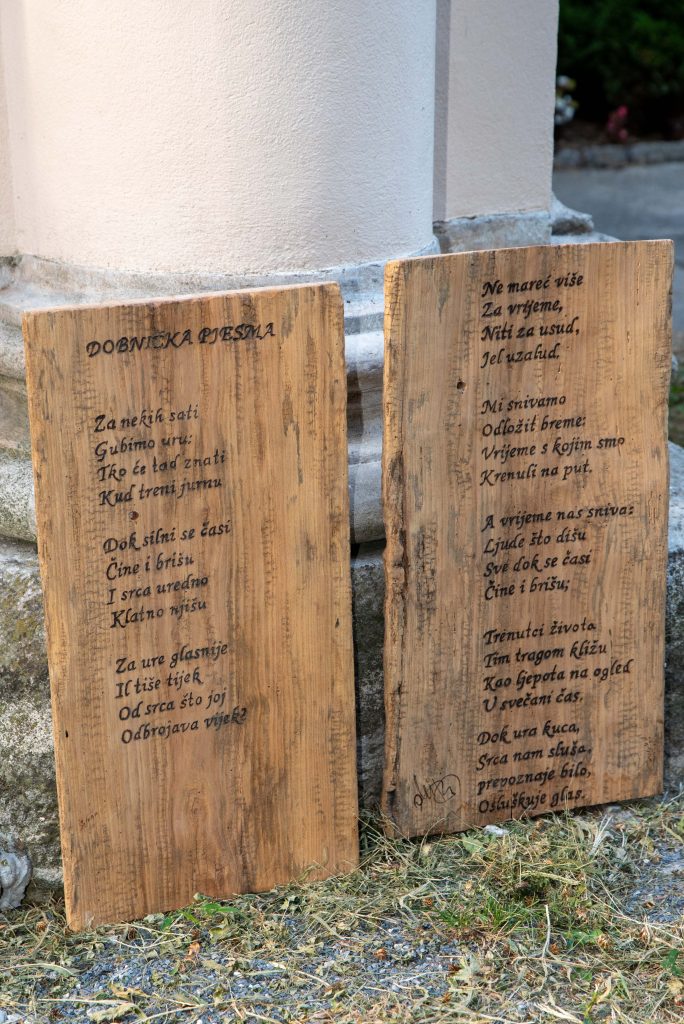 DOBNIČKA PJESMA
Za nekih sati
Gubimo uru:
Tko će tad znati
Kud treni jurnu
Dok silni se časi
Čine i brišu
I srca uredno
Klatno njišu
Za ure glasnije
Il tiše tijek
Od srca što joj
Odbrojava vijek?
Ne mareć više
Za vrijeme,
Niti za usud,
Jel uzalud.
Mi snivamo
Odložit breme:
Vrijeme s kojim smo
Krenuli na put.
A vrijeme nas sniva:
Ljude što dišu
Sve dok se časi
Čine i brišu;
Trenutci života
Tim tragom kližu
Kao ljepota na ogled
U svečani čas.
Dok ura kuca,
Srca nam sluša,
prepoznaje bilo,
Osluškuje glas.